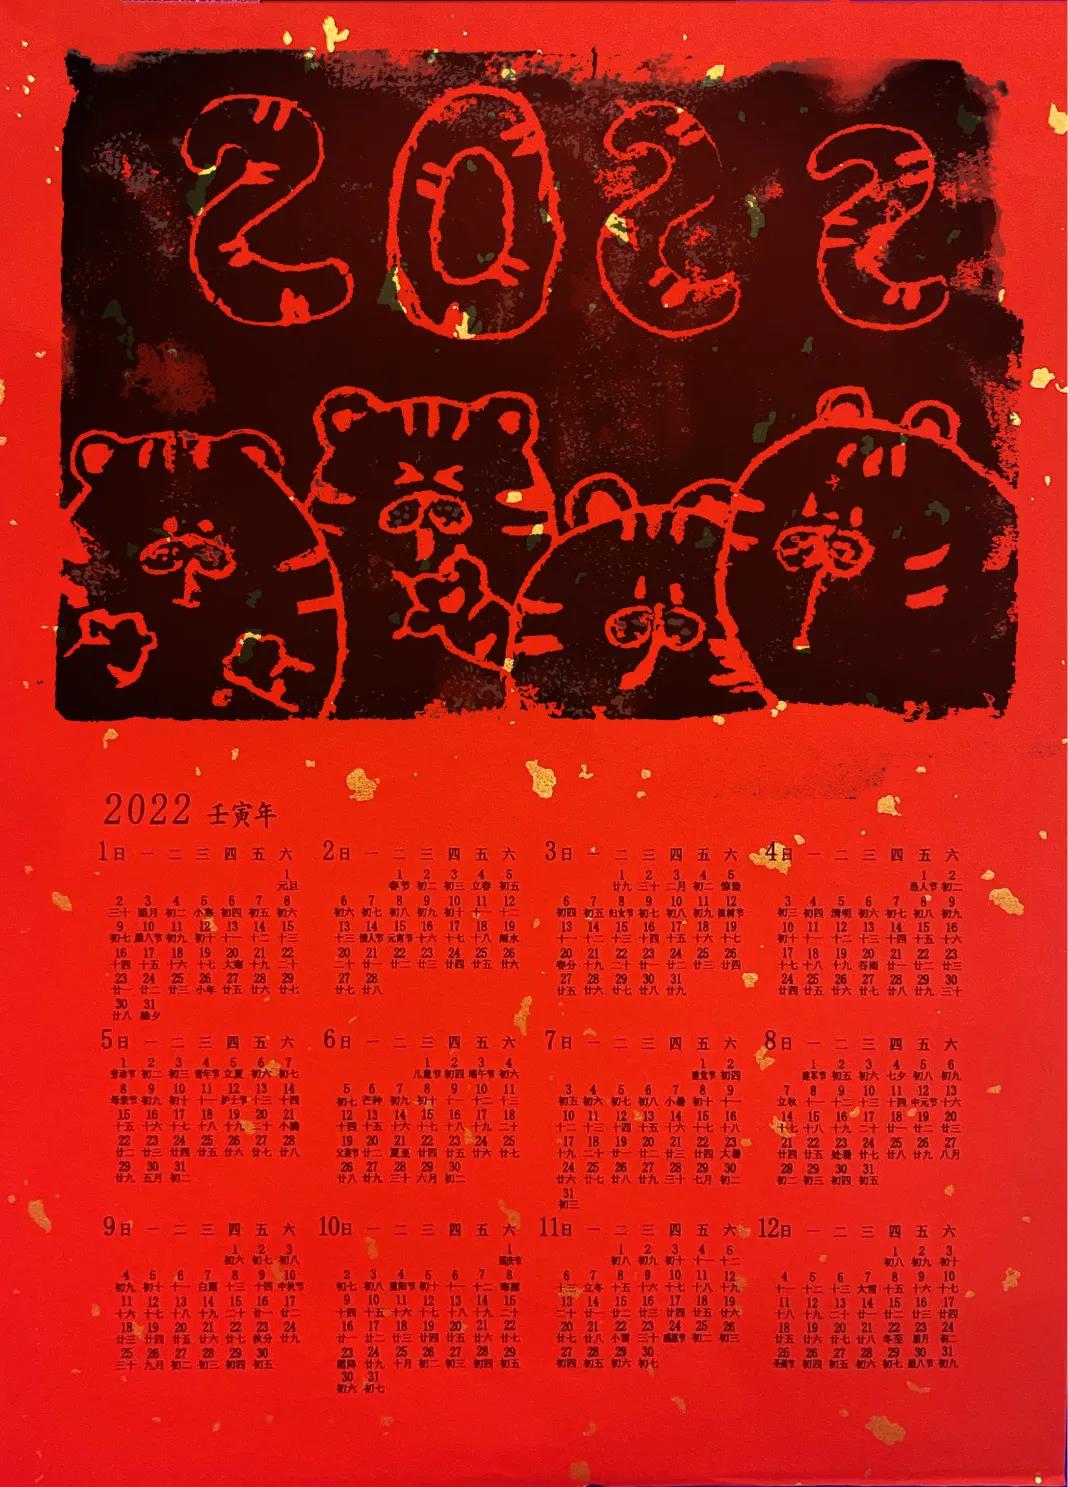 2022
2022 壬寅年
1 日 一 二 三 四 五 六
1
元旦
2 3 4 5 6 7 8
三十 腊月 初二 小寒 初四 初五 初六
9 10 11 12 13 14 15
初七 腊八节 初九 初十 十一 十二 十三
16 17 18 19 20 21 22
十四 十五 十六 十七 大寒 十九 二十
23 24 25 26 27 28 29
廿一 廿二 廿三 小年 廿五 廿六 廿七
30 31
廿八 除夕
2 日 一 二 三 四 五 六
1 2 3 4 5
春节 初二 初三 立春 初五
6 7 8 9 10 11 12
初六 初七 初八 初九 初十 十一 十二
13 14 15 16 17 18 19
十三 情人节 元宵节 十六 十七 十八 雨水
20 21 22 23 24 25 26
二十 廿一 廿二 廿三 廿四 廿五 廿六
27 28
廿七 廿八
3 日 一 二 三 四 五 六
1 2 3 4 5
廿九 三十 二月 初二 惊蛰
6 7 8 9 10 11 12
初四 初五 妇女节 初七 初八 初九 植树节
13 14 15 16 17 18 19
十一 十二 十三 十四 十五 十六 十七
20 21 22 23 24 25 26
春分 十九 二十 廿一 廿二 廿三 廿四
27 28 29 30 31
廿五 廿六 廿七 廿八 廿九
4 日 一 二 三 四 五 六
1 2
愚人节 初二
3 4 5 6 7 8 9
初三 初四 清明 初六 初七 初八 初九
10 11 12 13 14 15 16
初十 十一 十二 十三 十四 十五 十六
17 18 19 20 21 22 23
十七 十八 十九 谷雨 廿一 廿二 廿三
24 25 26 27 28 29 30
廿四 廿五 廿六 廿七 廿八 廿九 三十
5 日 一 二 三 四 五 六
1 2 3 4 5 6 7
劳动节 初二 初三 青年节 立夏 初六 初七
8 9 10 11 12 13 14
母亲节 初九 初十 十一 护士节 十三 十四
15 16 17 18 19 20 21
十五 十六 十七 十八 十九 二十 小满
22 23 24 25 26 27 28
廿二 廿三 廿四 廿五 廿六 廿七 廿八
29 30 31
廿九 五月 初二
6 日 一 二 三 四 五 六
1 2 3 4
儿童节 初四 端午节 初六
5 6 7 8 9 10 11
初七 芒种 初九 初十 十一 十二 十三
12 13 14 15 16 17 18
十四 十五 十六 十七 十八 十九 二十
19 20 21 22 23 24 25
父亲节 廿二 夏至 廿四 廿五 廿六 廿七
26 27 28 29 30
廿八 廿九 三十 六月 初二
7 日 一 二 三 四 五 六
1 2
建党节 初四
3 4 5 6 7 8 9
初五 初六 初七 初八 小暑 初十 十一
10 11 12 13 14 15 16
十二 十三 十四 十五 十六 十七 十八
17 18 19 20 21 22 23
十九 二十 廿一 廿二 廿三 廿四 大暑
24 25 26 27 28 29 30
廿六 廿七 廿八 廿九 三十 七月 初二
31
初三
8 日 一 二 三 四 五 六
1 2 3 4 5 6
建军节 初五 初六 七夕 初八 初九
7 8 9 10 11 12 13
立秋 十一 十二 十三 十四 中元节 十六
14 15 16 17 18 19 20
十七 十八 十九 二十 廿一 廿二 廿三
21 22 23 24 25 26 27
廿四 廿五 处暑 廿七 廿八 廿九 八月
28 29 30 31
初二 初三 初四 初五
9 日 一 二 三 四 五 六
1 2 3
初六 初七 初八
4 5 6 7 8 9 10
初九 初十 十一 白露 十三 十四 中秋节
11 12 13 14 15 16 17
十六 十七 十八 十九 二十 廿一 廿二
18 19 20 21 22 23 24
廿三 廿四 廿五 廿六 廿七 秋分 廿九
25 26 27 28 29 30
三十 九月 初二 初三 初四 初五
10 日 一 二 三 四 五 六
1
国庆节
2 3 4 5 6 7 8
初七 初八 重阳节 初十 十一 十二 寒露
9 10 11 12 13 14 15
十四 十五 十六 十七 十八 十九 二十
16 17 18 19 20 21 22
廿一 廿二 廿三 廿四 廿五 廿六 廿七
23 24 25 26 27 28 29
霜降 廿九 十月 初二 初三 初四 初五
30 31
初六 初七
11 日 一 二 三 四 五 六
1 2 3 4 5
初八 初九 初十 十一 十二
6 7 8 9 10 11 12
十三 立冬 十五 十六 十七 十八 十九
13 14 15 16 17 18 19
二十 廿一 廿二 廿三 廿四 廿五 廿六
20 21 22 23 24 25 26
廿七 廿八 小雪 三十 感恩节 初二 初三
27 28 29 30
初四 初五 初六 初七
12 日 一 二 三 四 五 六
1 2 3
初八 初九 初十
4 5 6 7 8 9 10
十一 十二 十三 大雪 十五 十六 十七
11 12 13 14 15 16 17
十八 十九 二十 廿一 廿二 廿三 廿四
18 19 20 21 22 23 24
廿五 廿六 廿七 廿八 冬至 腊月 初二
25 26 27 28 29 30 31
圣诞节 初四 初五 初六 初七 腊八节 初九